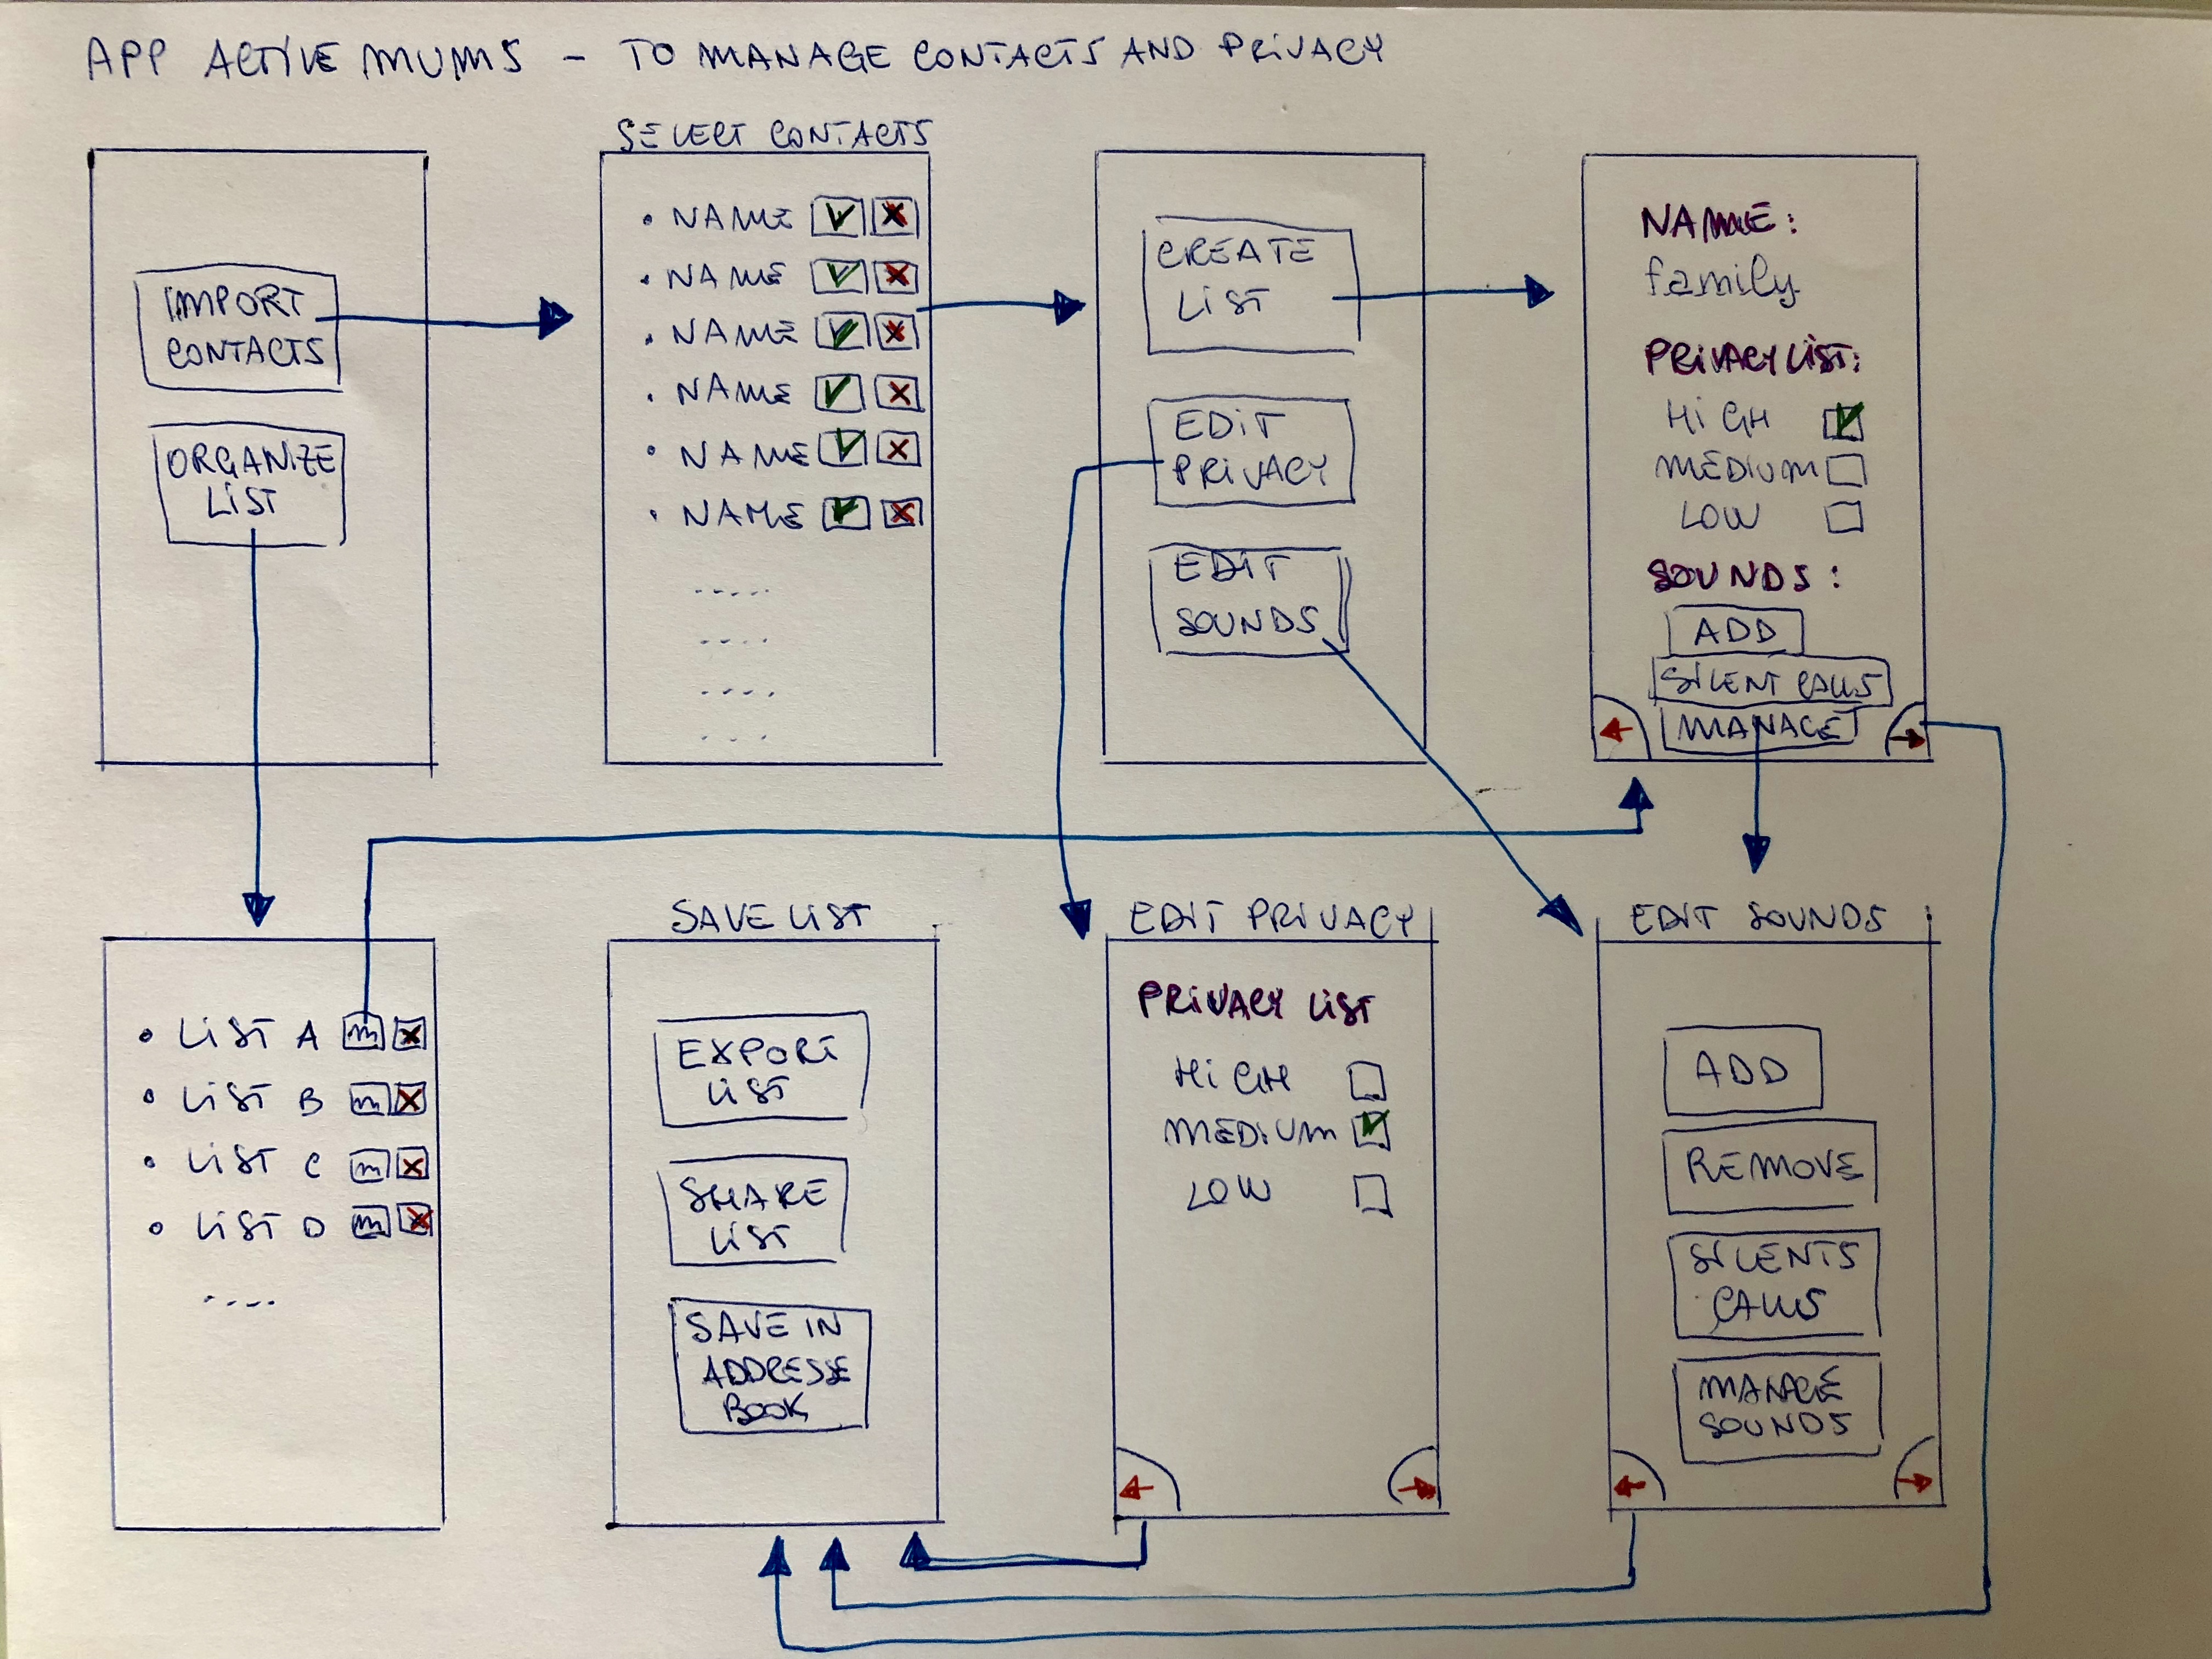 APP ACTIVE MUMS - TO MANAGE CONTACTS AND PRIVACY
IMPORT
CONTACTS
ORGANIZE
LIST
SELECT CONTACTS
• NAME
• NAME
• NAME
• NAME
• NAME
• NAME
.....
....
....
....
CREATE
LIST
EDIT
PRIVACY
EDIT
SOUNDS
NAME:
family
PRIVACY LIST:
HIGH
MEDIUM
LOW
SOUNDS:
ADD
SILENT CALLS
MANAGE
• LIST A m
• LIST B m
• LIST C m
• LIST D m
....
SAVE LIST
EXPORT
LIST
SHARE
LIST
SAVE IN
ADDRESSE
BOOK
EDIT PRIVACY
PRIVACY LIST
HIGH
MEDIUM
LOW
EDIT SOUNDS
ADD
REMOVE
SILENTS
CALLS
MANAGE
SOUNDS